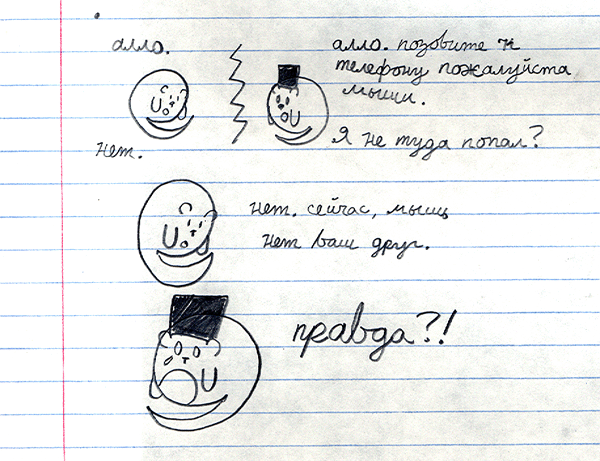 алло.
алло. позовите к
телефону пожалуйста
мыши.
Я не туда попал?
нет.
нет. сейчас, мышь
нет ваш друг.
правда?!